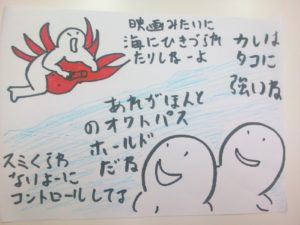 映画みたいに
海にひきづられ
たりしなーよ
カレは
タコに
強いね
あれがほんと
のオクトパス
ホールド
だね
スミくらわ
ないよーに
コントロールしてる